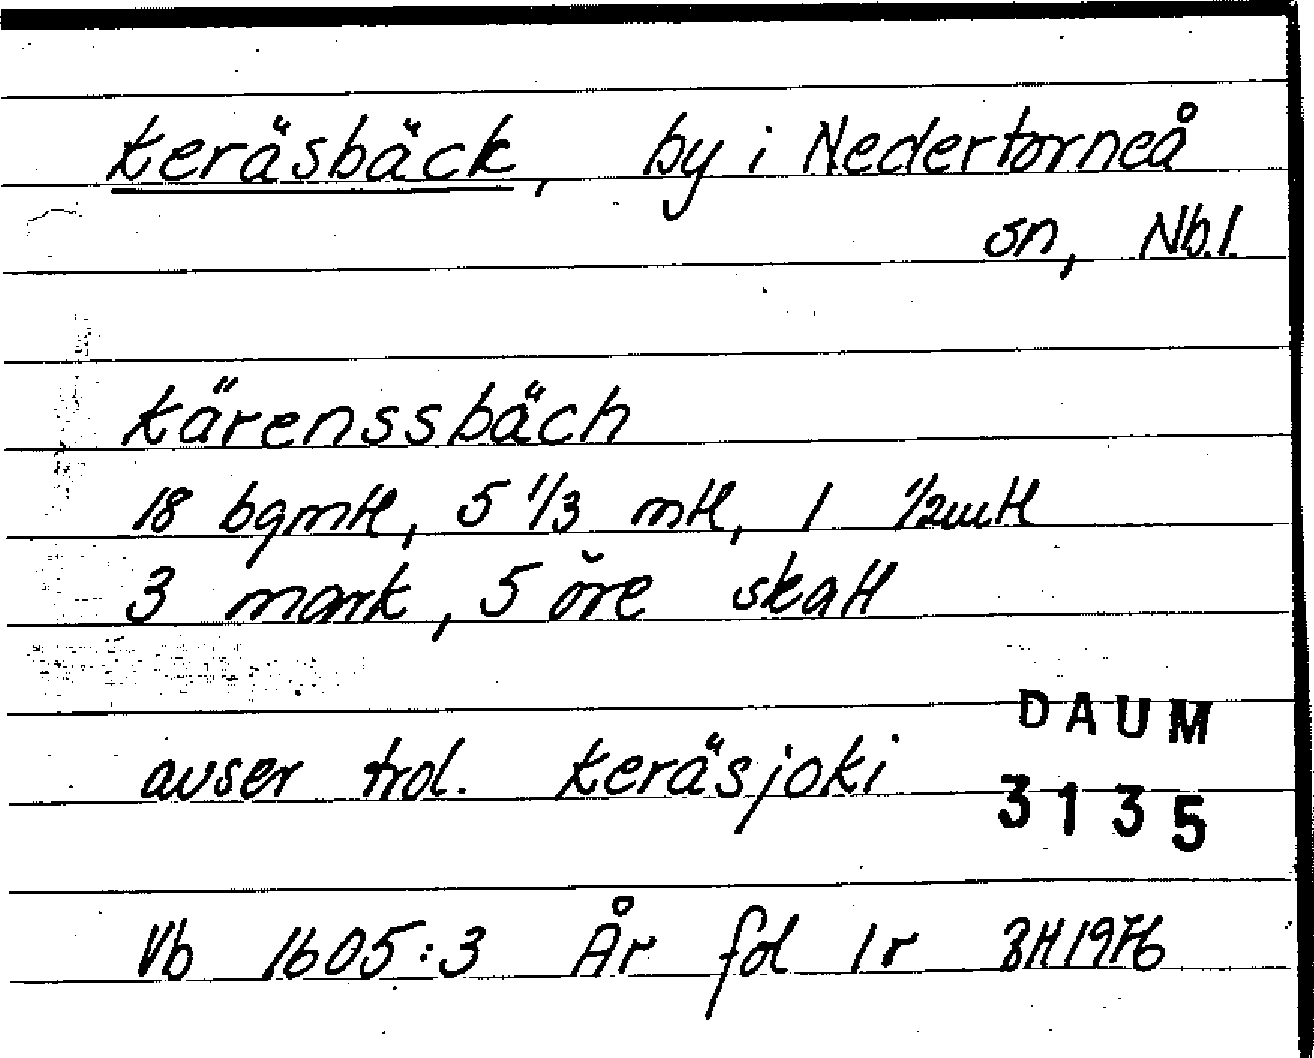 Keräsbäck, by i Nedertorneå
sn, Nb.l.
Kärenssbäch
18 bgmtl, 5 1/3 mtl, 1 1/2mtl
3 mark, 5 öre skatt
avser trol. Keräsjoki
DAUM
3135
Vb 1605:3 År fol 1r BH1976